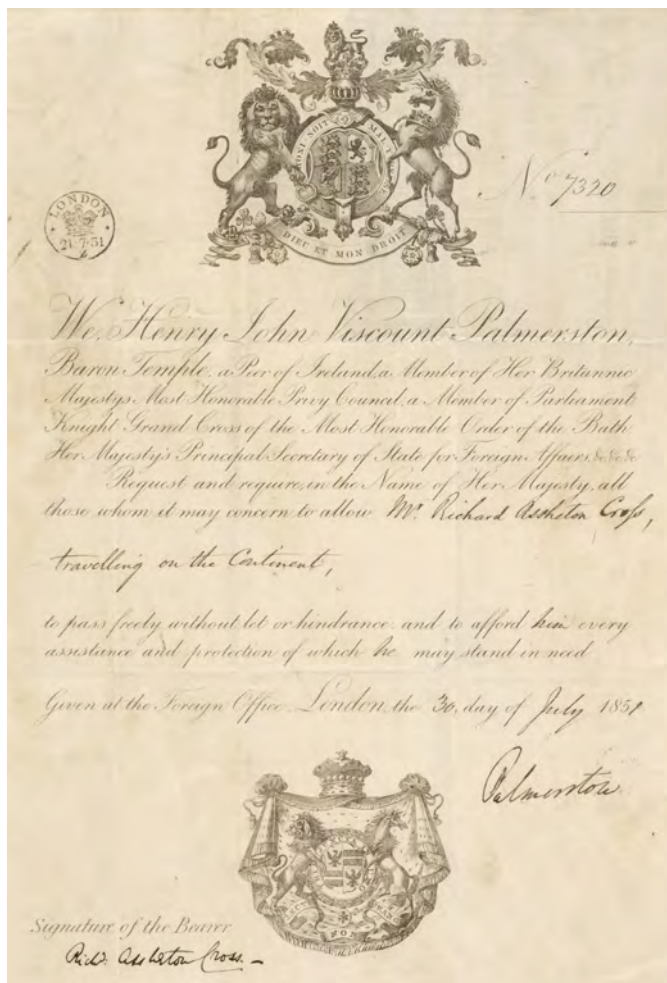 HONI SOIT QUI MAL Y PENSE
DIEU ET MON DROIT
No 7320
LONDON
21·7·51
We, Henry John Viscount Palmerston,
Baron Temple, a Peer of Ireland, a Member of Her Britannic
Majesty's Most Honorable Privy Council, a Member of Parliament
Knight Grand Cross of the Most Honorable Order of the Bath
Her Majesty's Principal Secretary of State for Foreign Affairs, &c &c &c
Request and require, in the Name of Her Majesty, all
those whom it may concern to allow Mr. Richard Assheton Cross,
travelling on the Continent,
to pass freely without let or hindrance, and to afford him every
assistance and protection of which he may stand in need
Given at the Foreign Office, London, the 30 day of July 1851
Palmerston
NON
Signature of the Bearer
Richd. Assheton Cross. –